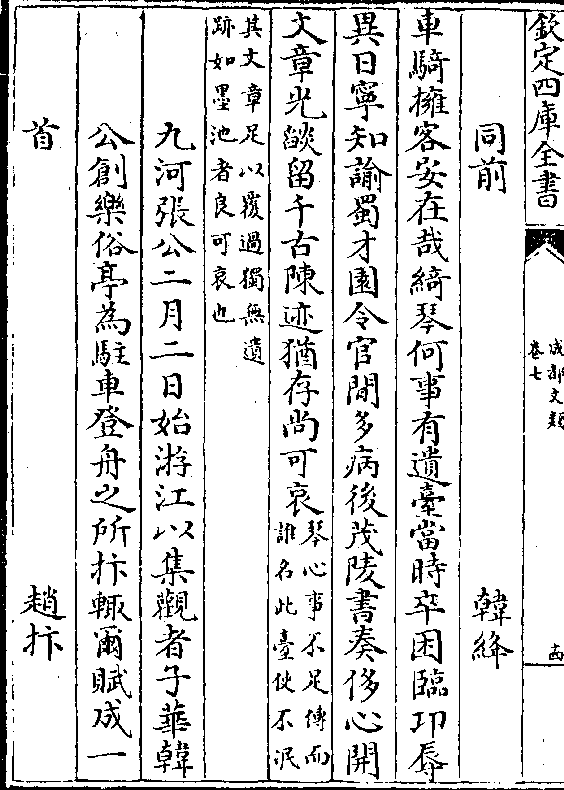 欽定四庫全書
成都文類
卷七
十四
同前　韓絳
車騎擁客安在哉綺琴何事有遺臺當時卒困臨卭辱
異日寧知諭蜀才園令官閒多病後茂陵書奏侈心開
文章光燄留千古陳迹猶存尚可哀琴心事不足傳而
誰名此臺使不泯
其文章足以覆過獨無遺
跡如墨池者良可哀也
九河張公二月二日始游江以集觀者子華韓
公創樂俗亭為駐車登舟之所抃輙爾賦成一
首　趙抃